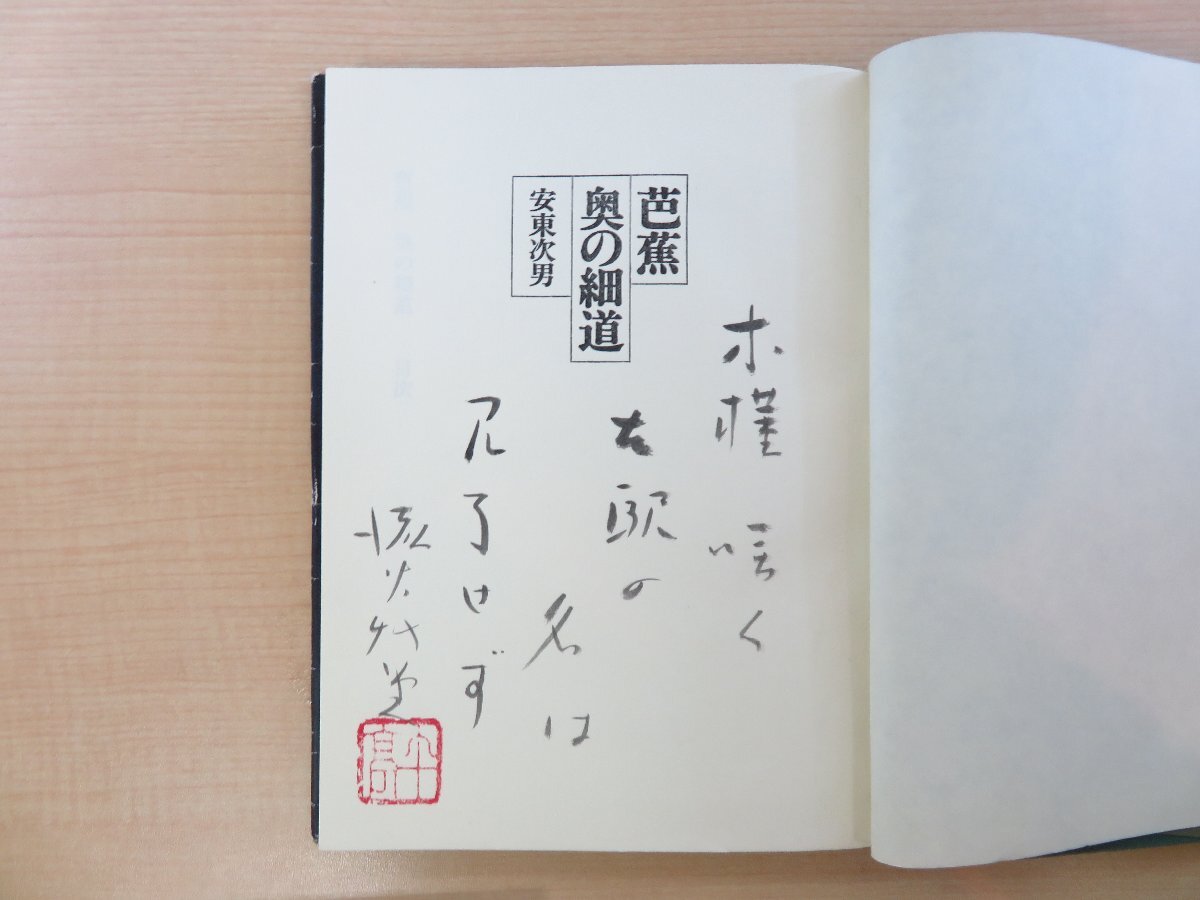 芭蕉
奥の細道
安東次男
木槿咲く
古駅の
名は
見了せず
流火艸堂